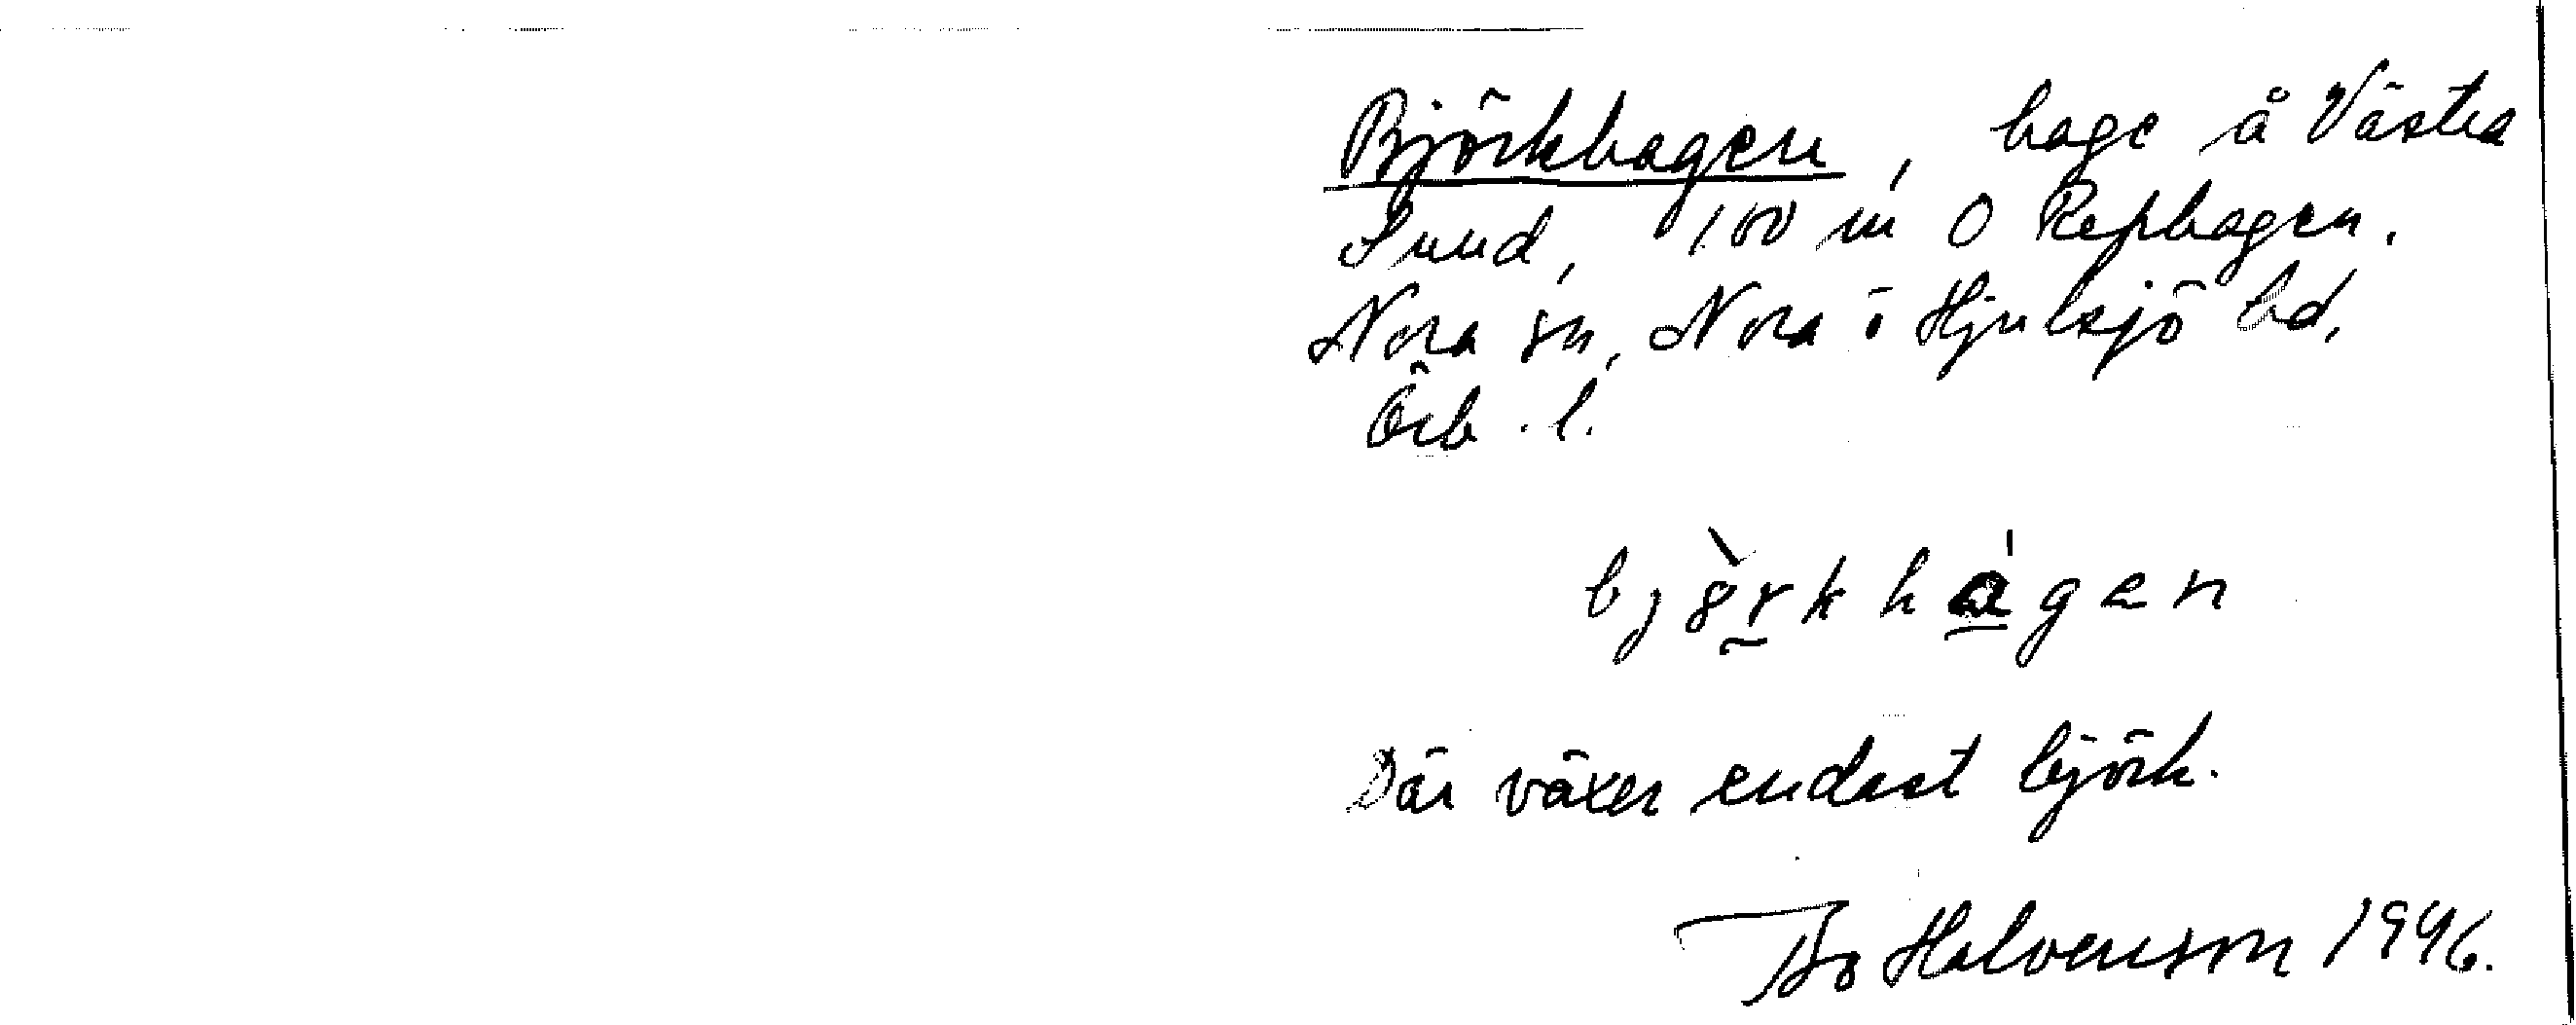 Björkhagen, hage å Västra
Sund, 100 m O Rephagen.
Nora sn, Nora o Hjulsjö bd,
Örb. l.
björkhagen
Där växer endast björk.
Bo Halvenson 1946.